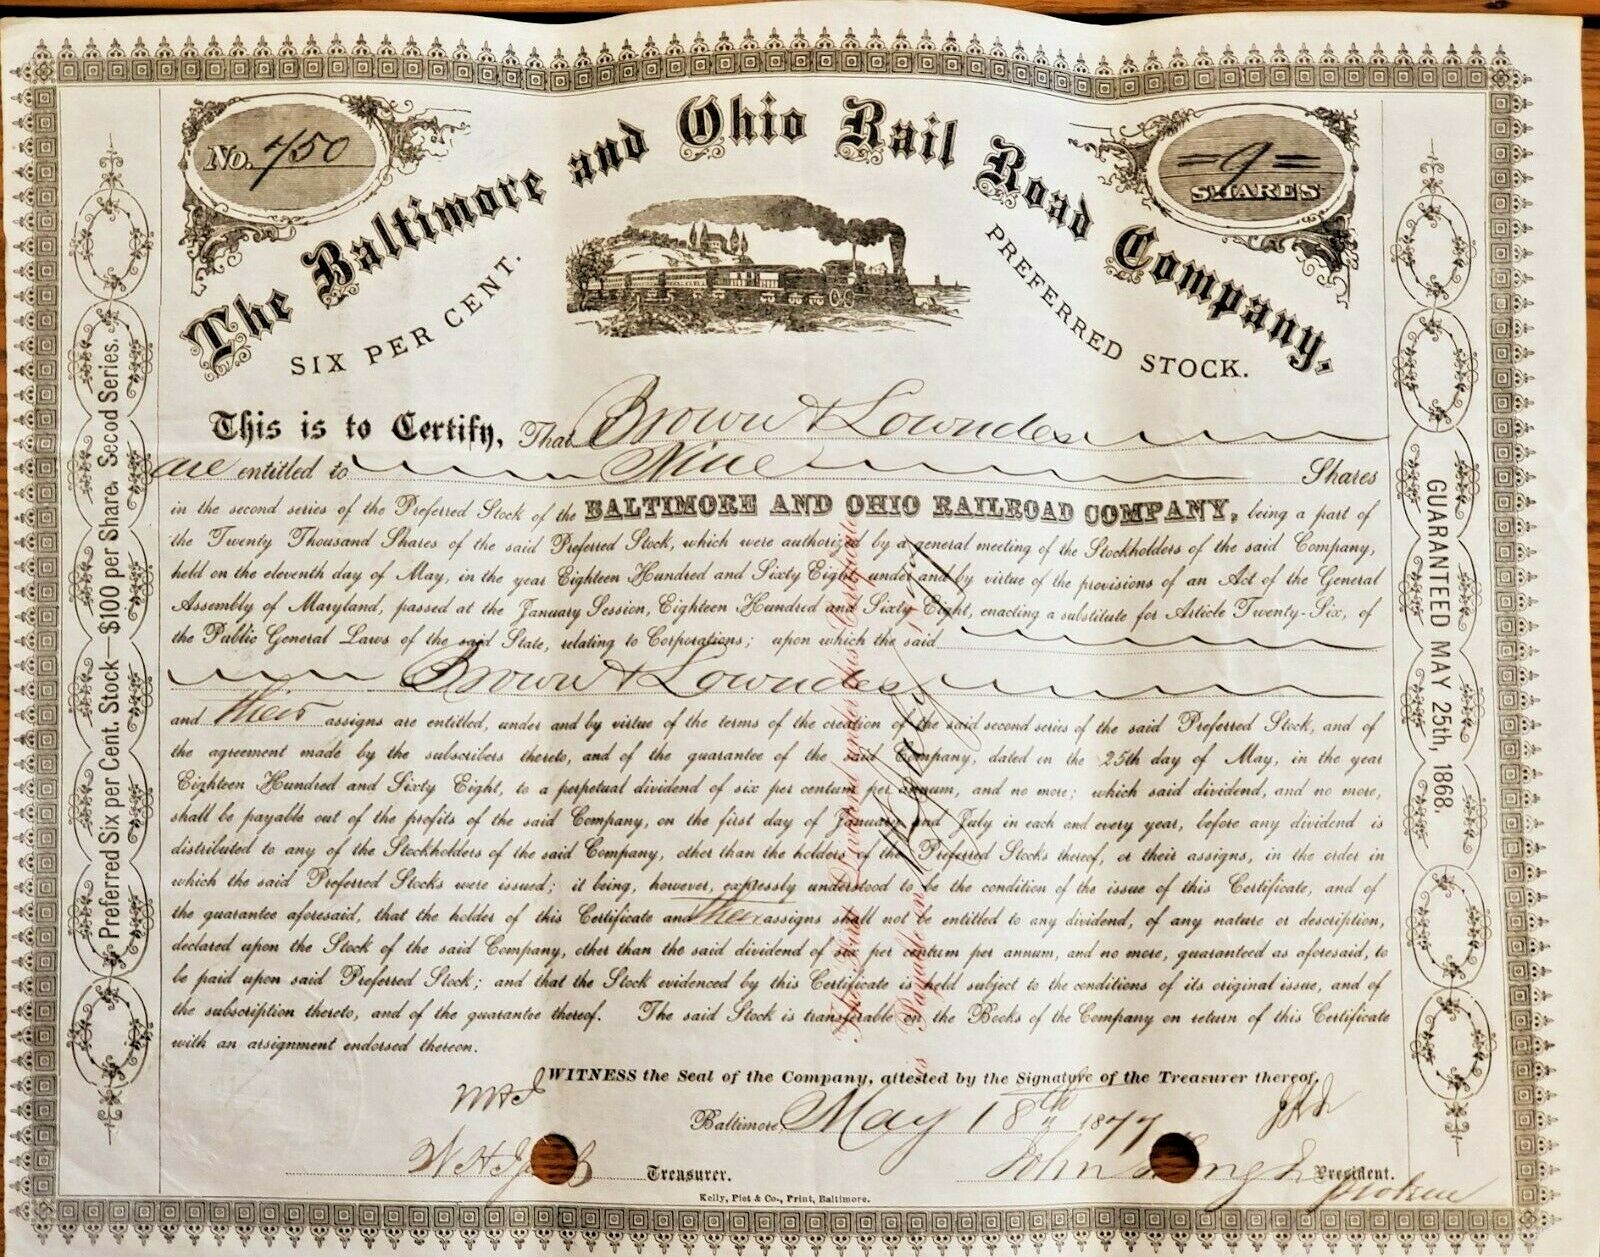 No. 750
= 9 =
SHARES
The Baltimore and Ohio Rail Road Company.
SIX PER CENT. PREFERRED STOCK.
This is to Certify, That Brown & Lowndes
are entitled to Nine Shares
in the second series of the Preferred Stock of the BALTIMORE AND OHIO RAILROAD COMPANY, being a part of
the Twenty Thousand Shares of the said Preferred Stock, which were authorized by a general meeting of the Stockholders of the said Company,
held on the eleventh day of May, in the year Eighteen Hundred and Sixty Eight, under and by virtue of the provisions of an Act of the General
Assembly of Maryland, passed at the January Session, Eighteen Hundred and Sixty Eight, enacting a substitute for Article Twenty-Six, of
the Public General Laws of the said State, relating to Corporations; upon which the said
Brown & Lowndes
and their assigns are entitled, under and by virtue of the terms of the creation of the said second series of the said Preferred Stock, and of
the agreement made by the subscribers thereto, and of the guarantee of the said Company, dated on the 25th day of May, in the year
Eighteen Hundred and Sixty Eight, to a perpetual dividend of six per centum per annum, and no more; which said dividend, and no more,
shall be payable out of the profits of the said Company, on the first day of January and July in each and every year, before any dividend is
distributed to any of the Stockholders of the said Company, other than the holders of the Preferred Stocks thereof, or their assigns, in the order in
which the said Preferred Stocks were issued; it being, however, expressly understood to be the condition of the issue of this Certificate, and of
the guarantee aforesaid, that the holder of this Certificate and their assigns shall not be entitled to any dividend, of any nature or description,
declared upon the Stock of the said Company, other than the said dividend of six per centum per annum, and no more, guaranteed as aforesaid, to
be paid upon said Preferred Stock; and that the Stock evidenced by this Certificate is held subject to the conditions of its original issue, and of
the subscription thereto, and of the guarantee thereof. The said Stock is transferable on the Books of the Company on return of this Certificate
with an assignment endorsed thereon.
WITNESS the Seal of the Company, attested by the Signature of the Treasurer thereof,
Baltimore, May 18th 1877
Treasurer.
John President.
pro tem
Kelly, Piet & Co., Print, Baltimore.
Preferred Six per Cent. Stock—$100 per Share. Secod Series.
GUARANTEED MAY 25th, 1868.
The first Dividend under this Certificate
is Payable on